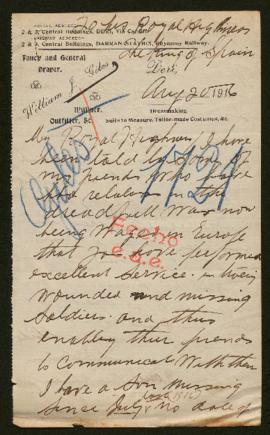 To his Royal Highness
2 & 3, Central Buildings, DERI, via Cardiff
2 & 3, Central Buildings, DARRAN STATION, Rhymney Railway.
the King of Spain
Fancy and General
Draper.
Deri,
William J Giles
Aug 20 1916
Milliner,
Outfitter, &c.
Dressmaking.
Suits to Measure, Tailor-made Costumes, &c.
1729
My Royal Highness I have
been told by some of
my friends who have
had relations in this
dreadfull War now
being Waged in Europe
that you have performed
Hecho
excellent Service in tracing
e.g.e.
wounded and missing
Soldiers and thus
enabling their friends
to Communicate With them
I have a Son missing
Since July no date of